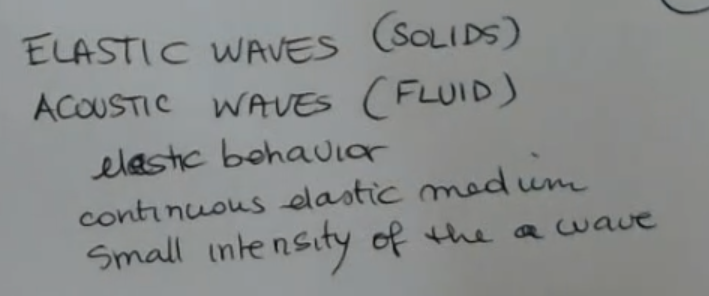 ELASTIC WAVES (SOLIDS)
ACOUSTIC WAVES (FLUID)
elastic behavior
continuous elastic medium
Small intensity of the a wave